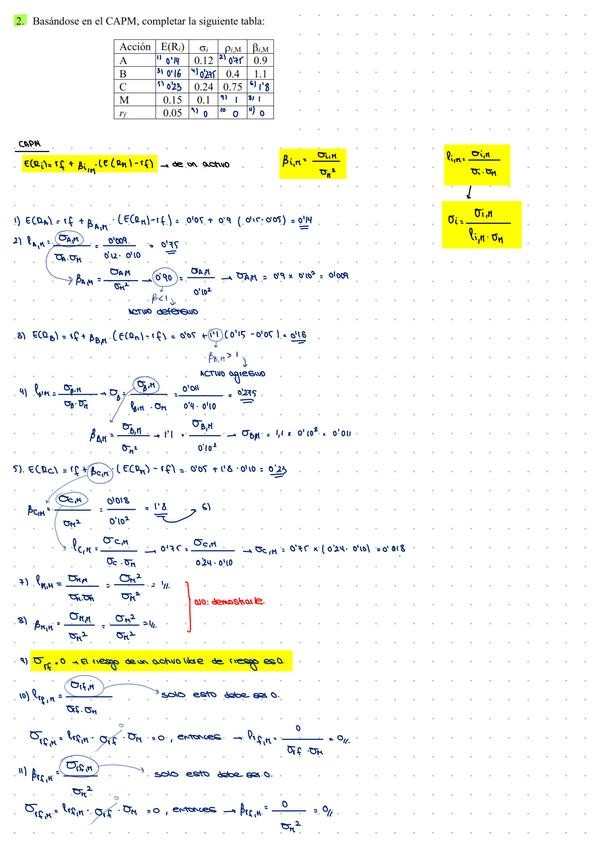 2. Basándose en el CAPM, completar la siguiente tabla:
Acción E(Ri) σi ρi,M βi,M
A 1) 0'14 0.12 2) 0'75 0.9
B 3) 0'16 4) 0'275 0.4 1.1
C 5) 0'23 0.24 0.75 6) 1'8
M 0.15 0.1 7) 1 8) 1
rf 0.05 9) 0 10 0 11) 0
CAPM
E(Ri) = rf + βi,M · (E(RM) - rf) → de un activo
βi,M = σi,M / σM²
ρi,M = σi,M / σi · σM
σi = σi,M / ρi,M · σM
1) E(RA) = rf + βA,M · (E(RM) - rf) = 0'05 + 0'9 (0'15 - 0'05) = 0'14
2) ρA,M = σA,M / σA · σM = 0'009 / 0'12 · 0'10 = 0'75
βA,M = σA,M / σM² → 0'90 = σA,M / 0'10² → σA,M = 0'9 × 0'10² = 0'009
β<1
ACTIVO defensivo
3) E(RB) = rf + βB,M · (E(RM) - rf) = 0'05 + 1'1 (0'15 - 0'05) = 0'16
βB,M > 1
ACTIVO agresivo
4) ρB,M = σB,M / σB · σM → σB = σB,M / ρB,M · σM = 0'011 / 0'4 · 0'10 = 0'275
βB,M = σB,M / σM² → 1'1 = σB,M / 0'10² → σB,M = 1,1 × 0'10² = 0'011
5). E(RC) = rf + βC,M · (E(RM) - rf) = 0'05 + 1'8 · 0'10 = 0'23
βC,M = σC,M / σM² = 0'018 / 0'10² = 1'8 6)
ρC,M = σC,M / σC · σM → 0'75 = σC,M / 0'24 · 0'10 → σC,M = 0'75 × (0'24 · 0'10) = 0'018
7) ρM,M = σM,M / σM · σM = σM² / σM² = 1//.
8) βM,M = σM,M / σM² = σM² / σM² = 1//.
ojo: demostrarlo.
9) σrf = 0 → El riesgo de un activo libre de riesgo es 0.
10) ρrf,M = σrf,M / σrf · σM → solo esto debe ser 0.
σrf,M = ρrf,M · σrf · σM = 0, entonces → ρrf,M = 0 / σrf · σM = 0//
11) βrf,M = σrf,M / σM² → solo esto debe ser 0.
σrf,M = ρrf,M · σrf · σM = 0, entonces → βrf,M = 0 / σM² = 0//